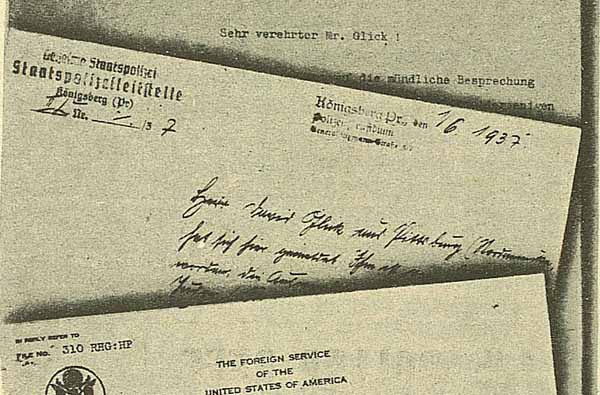 Sehr verehrter Mr. Glick !
die mündliche Besprechung
Geheime Staatspolizei
Staatspolizeileitstelle
Königsberg (Pr)
II Nr. 1 /3 7
Königsberg Pr., den 1/6 1937.
Herr David Glick aus Pittsburg
hat sich hier gemeldet. Ihm ist
worden, die
IN REPLY REFER TO
FILE NO. 310 RHG:HP
THE FOREIGN SERVICE
OF THE
UNITED STATES OF AMERICA